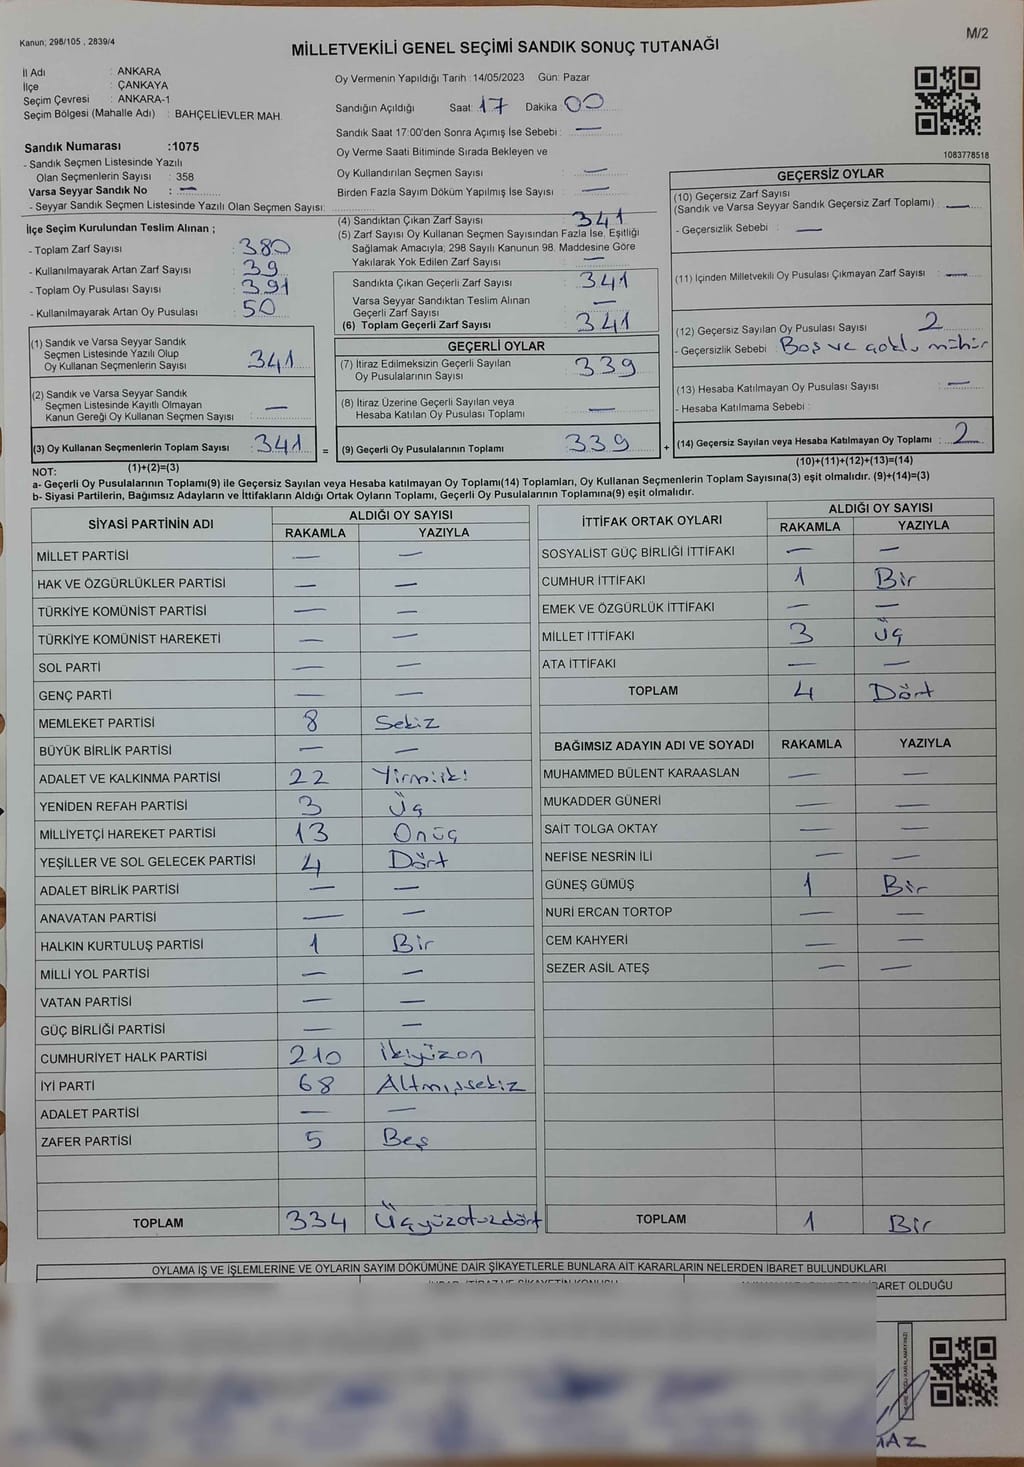 Kanun; 298/105 , 2839/4
M/2
MİLLETVEKİLİ GENEL SEÇİMİ SANDIK SONUÇ TUTANAĞI
İl Adı : ANKARA
İlçe : ÇANKAYA
Seçim Çevresi : ANKARA-1
Seçim Bölgesi (Mahalle Adı) : BAHÇELİEVLER MAH.
Sandık Numarası :1075
- Sandık Seçmen Listesinde Yazılı
Olan Seçmenlerin Sayısı : 358
Varsa Seyyar Sandık No : —
- Seyyar Sandık Seçmen Listesinde Yazılı Olan Seçmen Sayısı:
Oy Vermenin Yapıldığı Tarih :14/05/2023 Gün: Pazar
Sandığın Açıldığı Saat: 17 Dakika: 00
Sandık Saat 17:00'den Sonra Açımış İse Sebebi : —
Oy Verme Saati Bitiminde Sırada Bekleyen ve
Oy Kullandırılan Seçmen Sayısı : —
Birden Fazla Sayım Döküm Yapılmış İse Sayısı : —
1083778518
İlçe Seçim Kurulundan Teslim Alınan ;
- Toplam Zarf Sayısı : 380
- Kullanılmayarak Artan Zarf Sayısı : 39
- Toplam Oy Pusulası Sayısı : 391
- Kullanılmayarak Artan Oy Pusulası : 50
(1) Sandık ve Varsa Seyyar Sandık
Seçmen Listesinde Yazılı Olup
Oy Kullanan Seçmenlerin Sayısı : 341
(2) Sandık ve Varsa Seyyar Sandık
Seçmen Listesinde Kayıtlı Olmayan
Kanun Gereği Oy Kullanan Seçmen Sayısı : —
(3) Oy Kullanan Seçmenlerin Toplam Sayısı : 341
(4) Sandıktan Çıkan Zarf Sayısı : 341
(5) Zarf Sayısı Oy Kullanan Seçmen Sayısından Fazla İse, Eşitliği
Sağlamak Amacıyla; 298 Sayılı Kanunun 98. Maddesine Göre
Yakılarak Yok Edilen Zarf Sayısı : —
Sandıkta Çıkan Geçerli Zarf Sayısı : 341
Varsa Seyyar Sandıktan Teslim Alınan
Geçerli Zarf Sayısı : —
(6) Toplam Geçerli Zarf Sayısı : 341
GEÇERLİ OYLAR
(7) İtiraz Edilmeksizin Geçerli Sayılan
Oy Pusulalarının Sayısı : 339
(8) İtiraz Üzerine Geçerli Sayılan veya
Hesaba Katılan Oy Pusulası Toplamı : —
= (9) Geçerli Oy Pusulalarının Toplamı : 339
GEÇERSİZ OYLAR
(10) Geçersiz Zarf Sayısı
(Sandık ve Varsa Seyyar Sandık Geçersiz Zarf Toplamı) : —
- Geçersizlik Sebebi : —
(11) İçinden Milletvekili Oy Pusulası Çıkmayan Zarf Sayısı : —
(12) Geçersiz Sayılan Oy Pusulası Sayısı : 2
- Geçersizlik Sebebi : Boş ve çoklu mühür
(13) Hesaba Katılmayan Oy Pusulası Sayısı : —
- Hesaba Katılmama Sebebi :
+ (14) Geçersiz Sayılan veya Hesaba Katılmayan Oy Toplamı : 2
NOT: (1)+(2)=(3)
(10)+(11)+(12)+(13)=(14)
a- Geçerli Oy Pusulalarının Toplamı(9) ile Geçersiz Sayılan veya Hesaba katılmayan Oy Toplamı(14) Toplamları, Oy Kullanan Seçmenlerin Toplam Sayısına(3) eşit olmalıdır. (9)+(14)=(3)
b- Siyasi Partilerin, Bağımsız Adayların ve İttifakların Aldığı Ortak Oyların Toplamı, Geçerli Oy Pusulalarının Toplamına(9) eşit olmalıdır.
SİYASİ PARTİNİN ADI ALDIĞI OY SAYISI
RAKAMLA YAZIYLA
MİLLET PARTİSİ — —
HAK VE ÖZGÜRLÜKLER PARTİSİ — —
TÜRKİYE KOMÜNİST PARTİSİ — —
TÜRKİYE KOMÜNİST HAREKETİ — —
SOL PARTİ — —
GENÇ PARTİ — —
MEMLEKET PARTİSİ 8 Sekiz
BÜYÜK BİRLİK PARTİSİ — —
ADALET VE KALKINMA PARTİSİ 22 Yirmiiki
YENİDEN REFAH PARTİSİ 3 Üç
MİLLİYETÇİ HAREKET PARTİSİ 13 Onüç
YEŞİLLER VE SOL GELECEK PARTİSİ 4 Dört
ADALET BİRLİK PARTİSİ — —
ANAVATAN PARTİSİ — —
HALKIN KURTULUŞ PARTİSİ 1 Bir
MİLLİ YOL PARTİSİ — —
VATAN PARTİSİ — —
GÜÇ BİRLİĞİ PARTİSİ — —
CUMHURİYET HALK PARTİSİ 210 İkiyüzon
İYİ PARTİ 68 Altmışsekiz
ADALET PARTİSİ — —
ZAFER PARTİSİ 5 Beş
TOPLAM 334 Üçyüzotuzdört
İTTİFAK ORTAK OYLARI ALDIĞI OY SAYISI
RAKAMLA YAZIYLA
SOSYALİST GÜÇ BİRLİĞİ İTTİFAKI — —
CUMHUR İTTİFAKI 1 Bir
EMEK VE ÖZGÜRLÜK İTTİFAKI — —
MİLLET İTTİFAKI 3 Üç
ATA İTTİFAKI — —
TOPLAM 4 Dört
BAĞIMSIZ ADAYIN ADI VE SOYADI RAKAMLA YAZIYLA
MUHAMMED BÜLENT KARAASLAN — —
MUKADDER GÜNERİ — —
SAİT TOLGA OKTAY — —
NEFİSE NESRİN İLİ — —
GÜNEŞ GÜMÜŞ 1 Bir
NURİ ERCAN TORTOP — —
CEM KAHYERİ — —
SEZER ASİL ATEŞ — —
TOPLAM 1 Bir
OYLAMA İŞ VE İŞLEMLERİNE VE OYLARIN SAYIM DÖKÜMÜNE DAİR ŞİKAYETLERLE BUNLARA AİT KARARLARIN NELERDEN İBARET BULUNDUKLARI
İBARET OLDUĞU